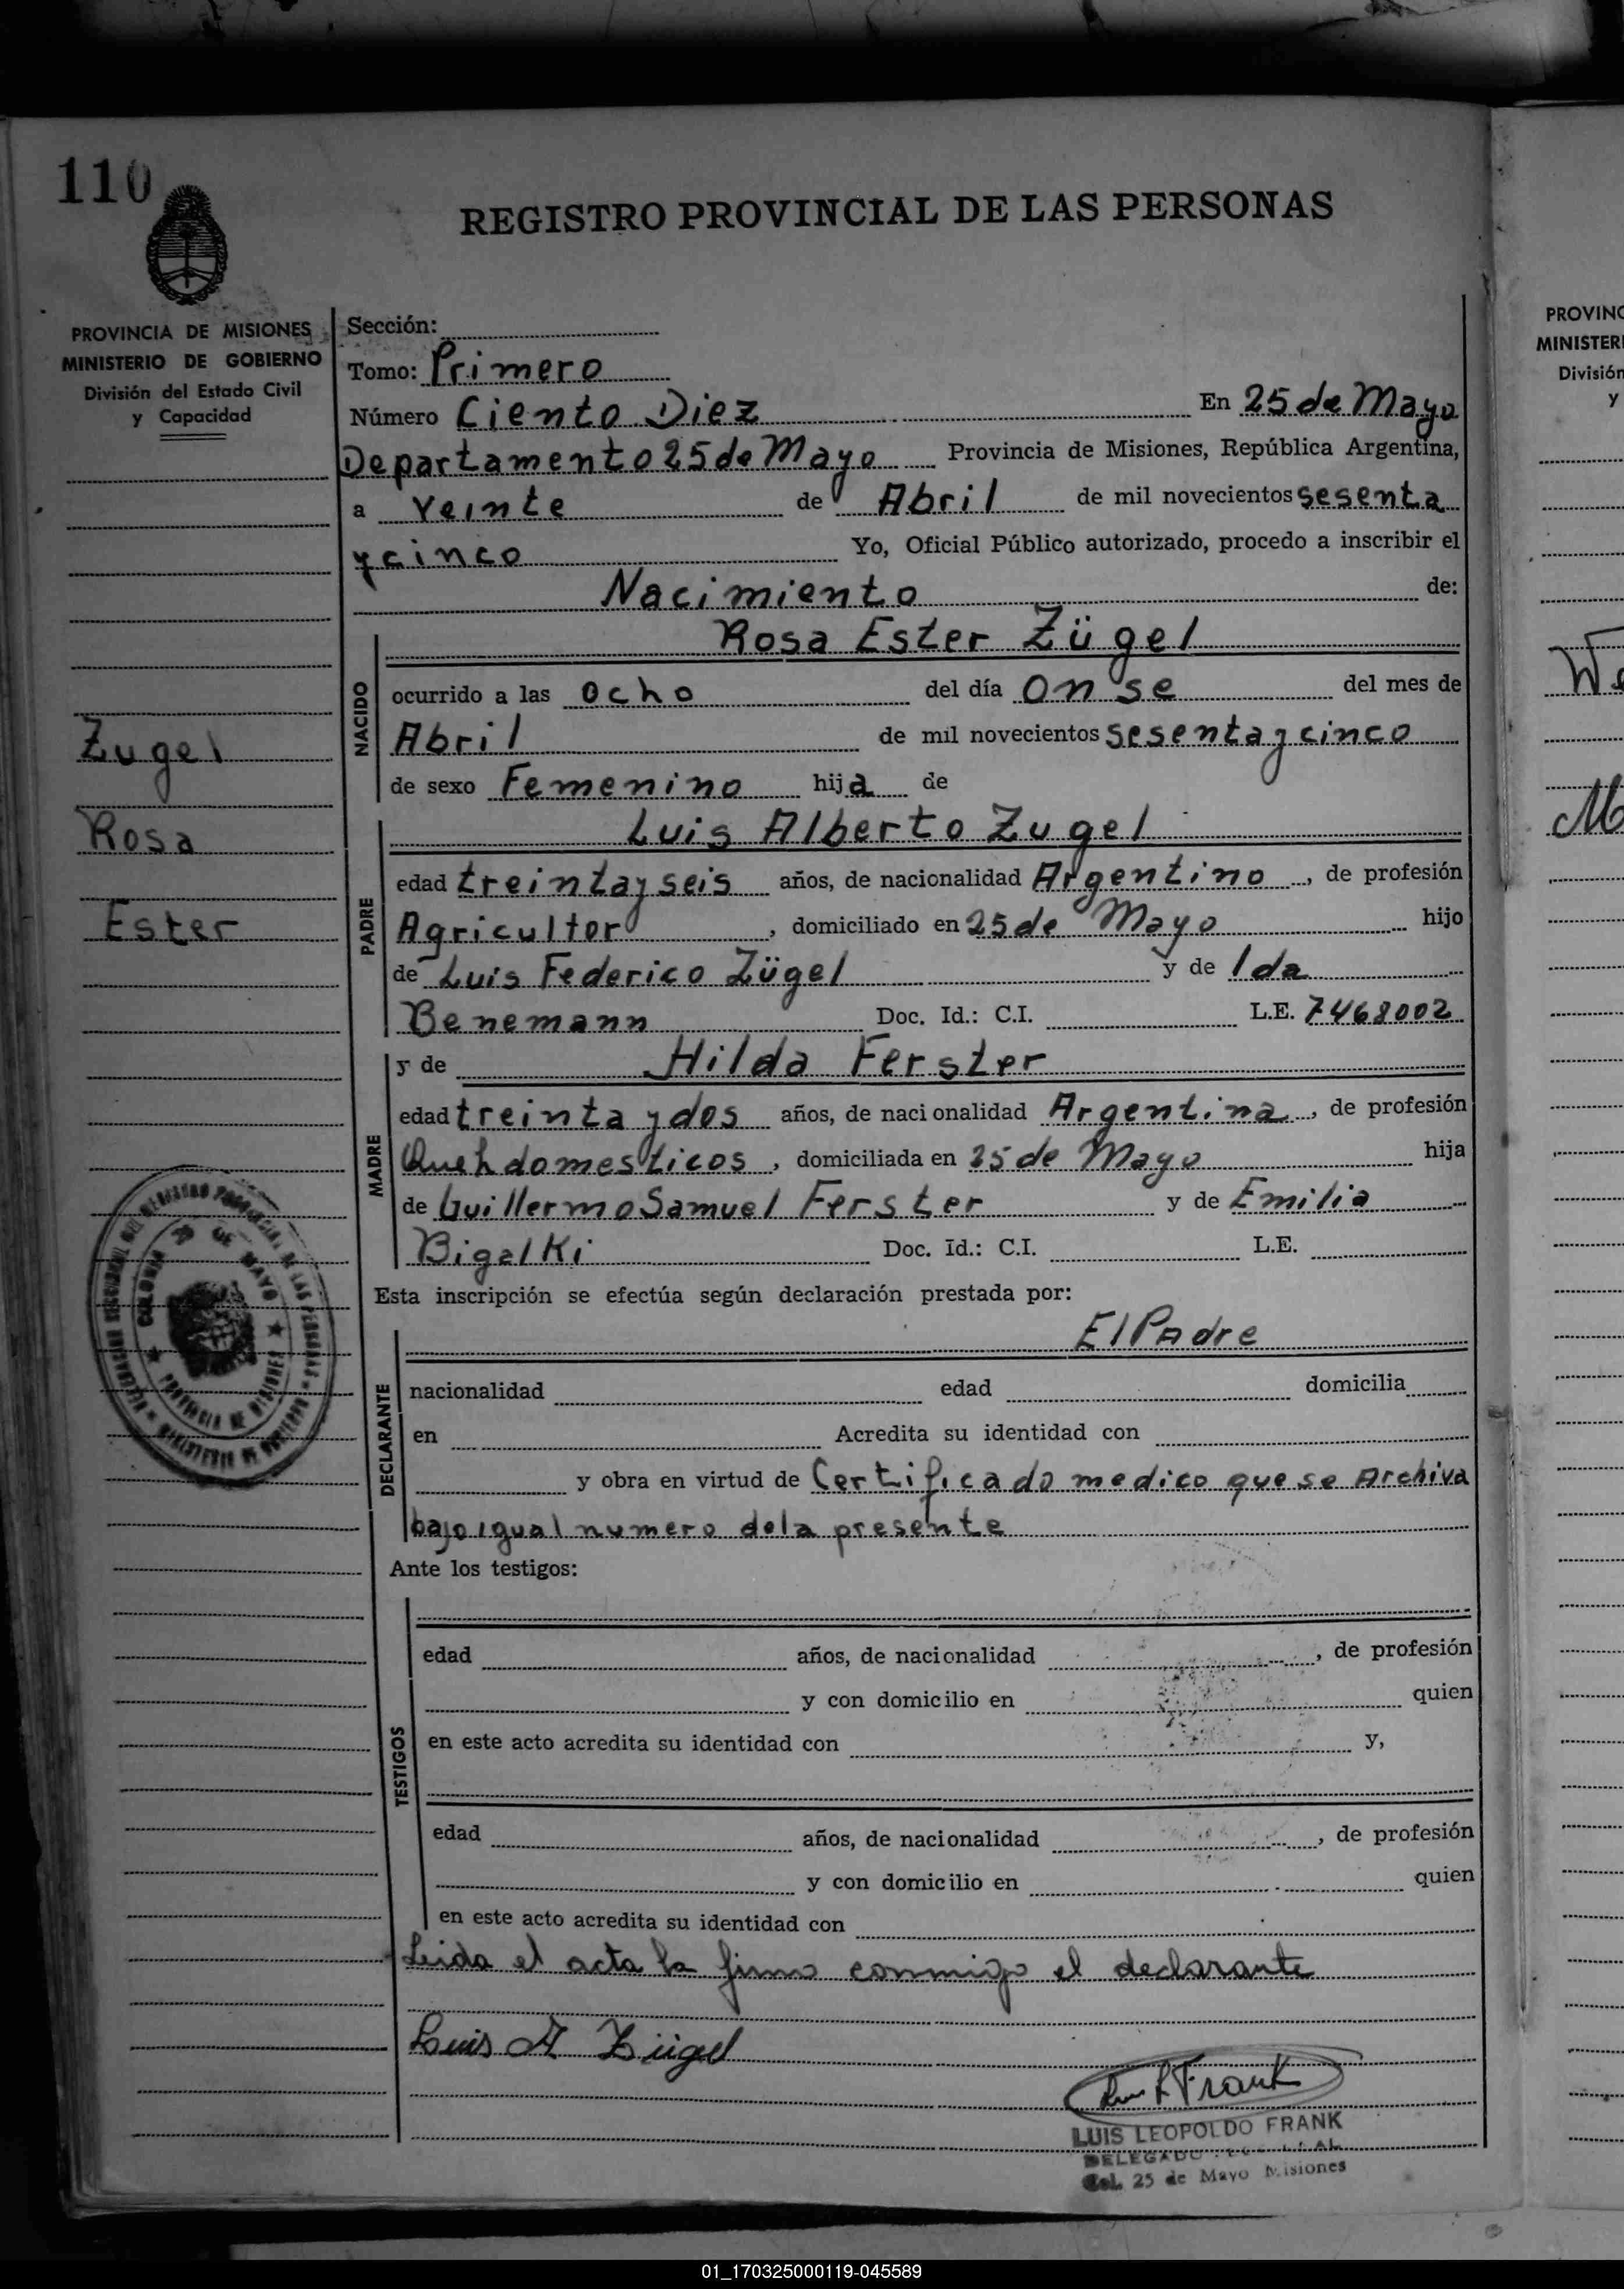 110
REGISTRO PROVINCIAL DE LAS PERSONAS
PROVINCIA DE MISIONES
MINISTERIO DE GOBIERNO
División del Estado Civil
y Capacidad
Sección:
Tomo: Primero
Número Ciento Diez En 25 de Mayo
Departamento 25 de Mayo Provincia de Misiones, República Argentina,
a Veinte de Abril de mil novecientos sesenta
y cinco Yo, Oficial Público autorizado, procedo a inscribir el
Nacimiento de:
Rosa Ester Zügel
NACIDO
ocurrido a las ocho del día onse del mes de
Abril de mil novecientos sesenta y cinco
de sexo Femenino hija de
Zugel
Rosa
Ester
Luis Alberto Zugel
PADRE
edad treinta y seis años, de nacionalidad Argentino, de profesión
Agricultor, domiciliado en 25 de Mayo hijo
de Luis Federico Zügel y de Ida
Benemann Doc. Id.: C.I. L.E. 7468002
y de Hilda Ferster
MADRE
edad treinta y dos años, de nacionalidad Argentina, de profesión
domesticos, domiciliada en 25 de Mayo hija
de Guillermo Samuel Ferster y de Emilia
Bigalki Doc. Id.: C.I. L.E.
COLONIA 25 DE MAYO
PROVINCIA DE MISIONES
MINISTERIO DE GOBIERNO
Esta inscripción se efectúa según declaración prestada por:
El PAdre
DECLARANTE
nacionalidad edad domicilia
en Acredita su identidad con
y obra en virtud de Certificado medico que se Archiva
bajo igual numero dela presente
Ante los testigos:
TESTIGOS
edad años, de nacionalidad , de profesión
y con domicilio en quien
en este acto acredita su identidad con y,
edad años, de nacionalidad , de profesión
y con domicilio en quien
en este acto acredita su identidad con
Leida el acta la firma conmigo el declarante
Luis A Zügel
Frank
LUIS LEOPOLDO FRANK
DELEGADO
Col. 25 de Mayo Misiones
PROVINC
MINISTERI
División
y
01_170325000119-045589